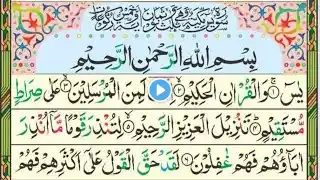 بِسْمِ اللّٰهِ الرَّحْمٰنِ الرَّحِيْمِ
يٰسٓ ۚ﴿۱﴾ وَالْقُرْاٰنِ الْحَكِيْمِ ۙ﴿۲﴾ لَمِنَ الْمُرْسَلِيْنَ ۙ﴿۳﴾ عَلٰى صِرَاطٍ
مُّسْتَقِيْمٍ ؕ﴿۴﴾ تَنْزِيْلَ الْعَزِيْزِ الرَّحِيْمِ ۙ﴿۵﴾ لِتُنْذِرَ قَوْمًا مَّاۤ اُنْذِرَ
اٰبَآؤُهُمْ فَهُمْ غٰفِلُوْنَ ﴿۶﴾ لَقَدْ حَقَّ الْقَوْلُ عَلٰۤى اَكْثَرِهِمْ فَهُمْ